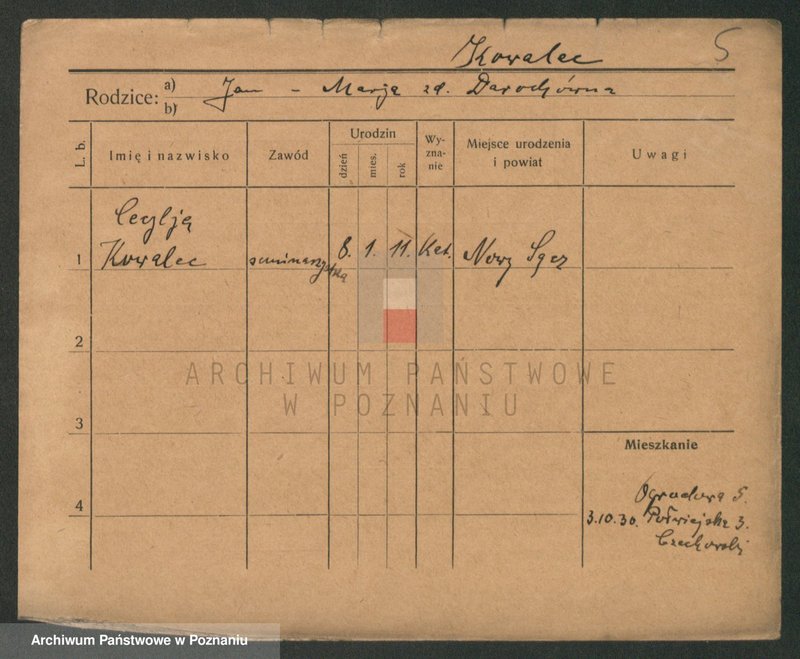 Kowalec 5
Rodzice: a) b) Jan - Marja zd. Darochówna
L. b. Imię i nazwisko Zawód Urodzin dzień mies. rok Wy-zna-nie Miejsce urodzenia i powiat Uwagi
Cecylja
1 Kowalec seminarzystka 8. 1. 11. Kat. Nowy Sącz
2
ARCHIWUM PAŃSTWOWE
W POZNANIU
3
Mieszkanie
4
Ogrodowa 5.
3.10.30. Półwiejska 3.
Czechowski
Archiwum Państwowe w Poznaniu